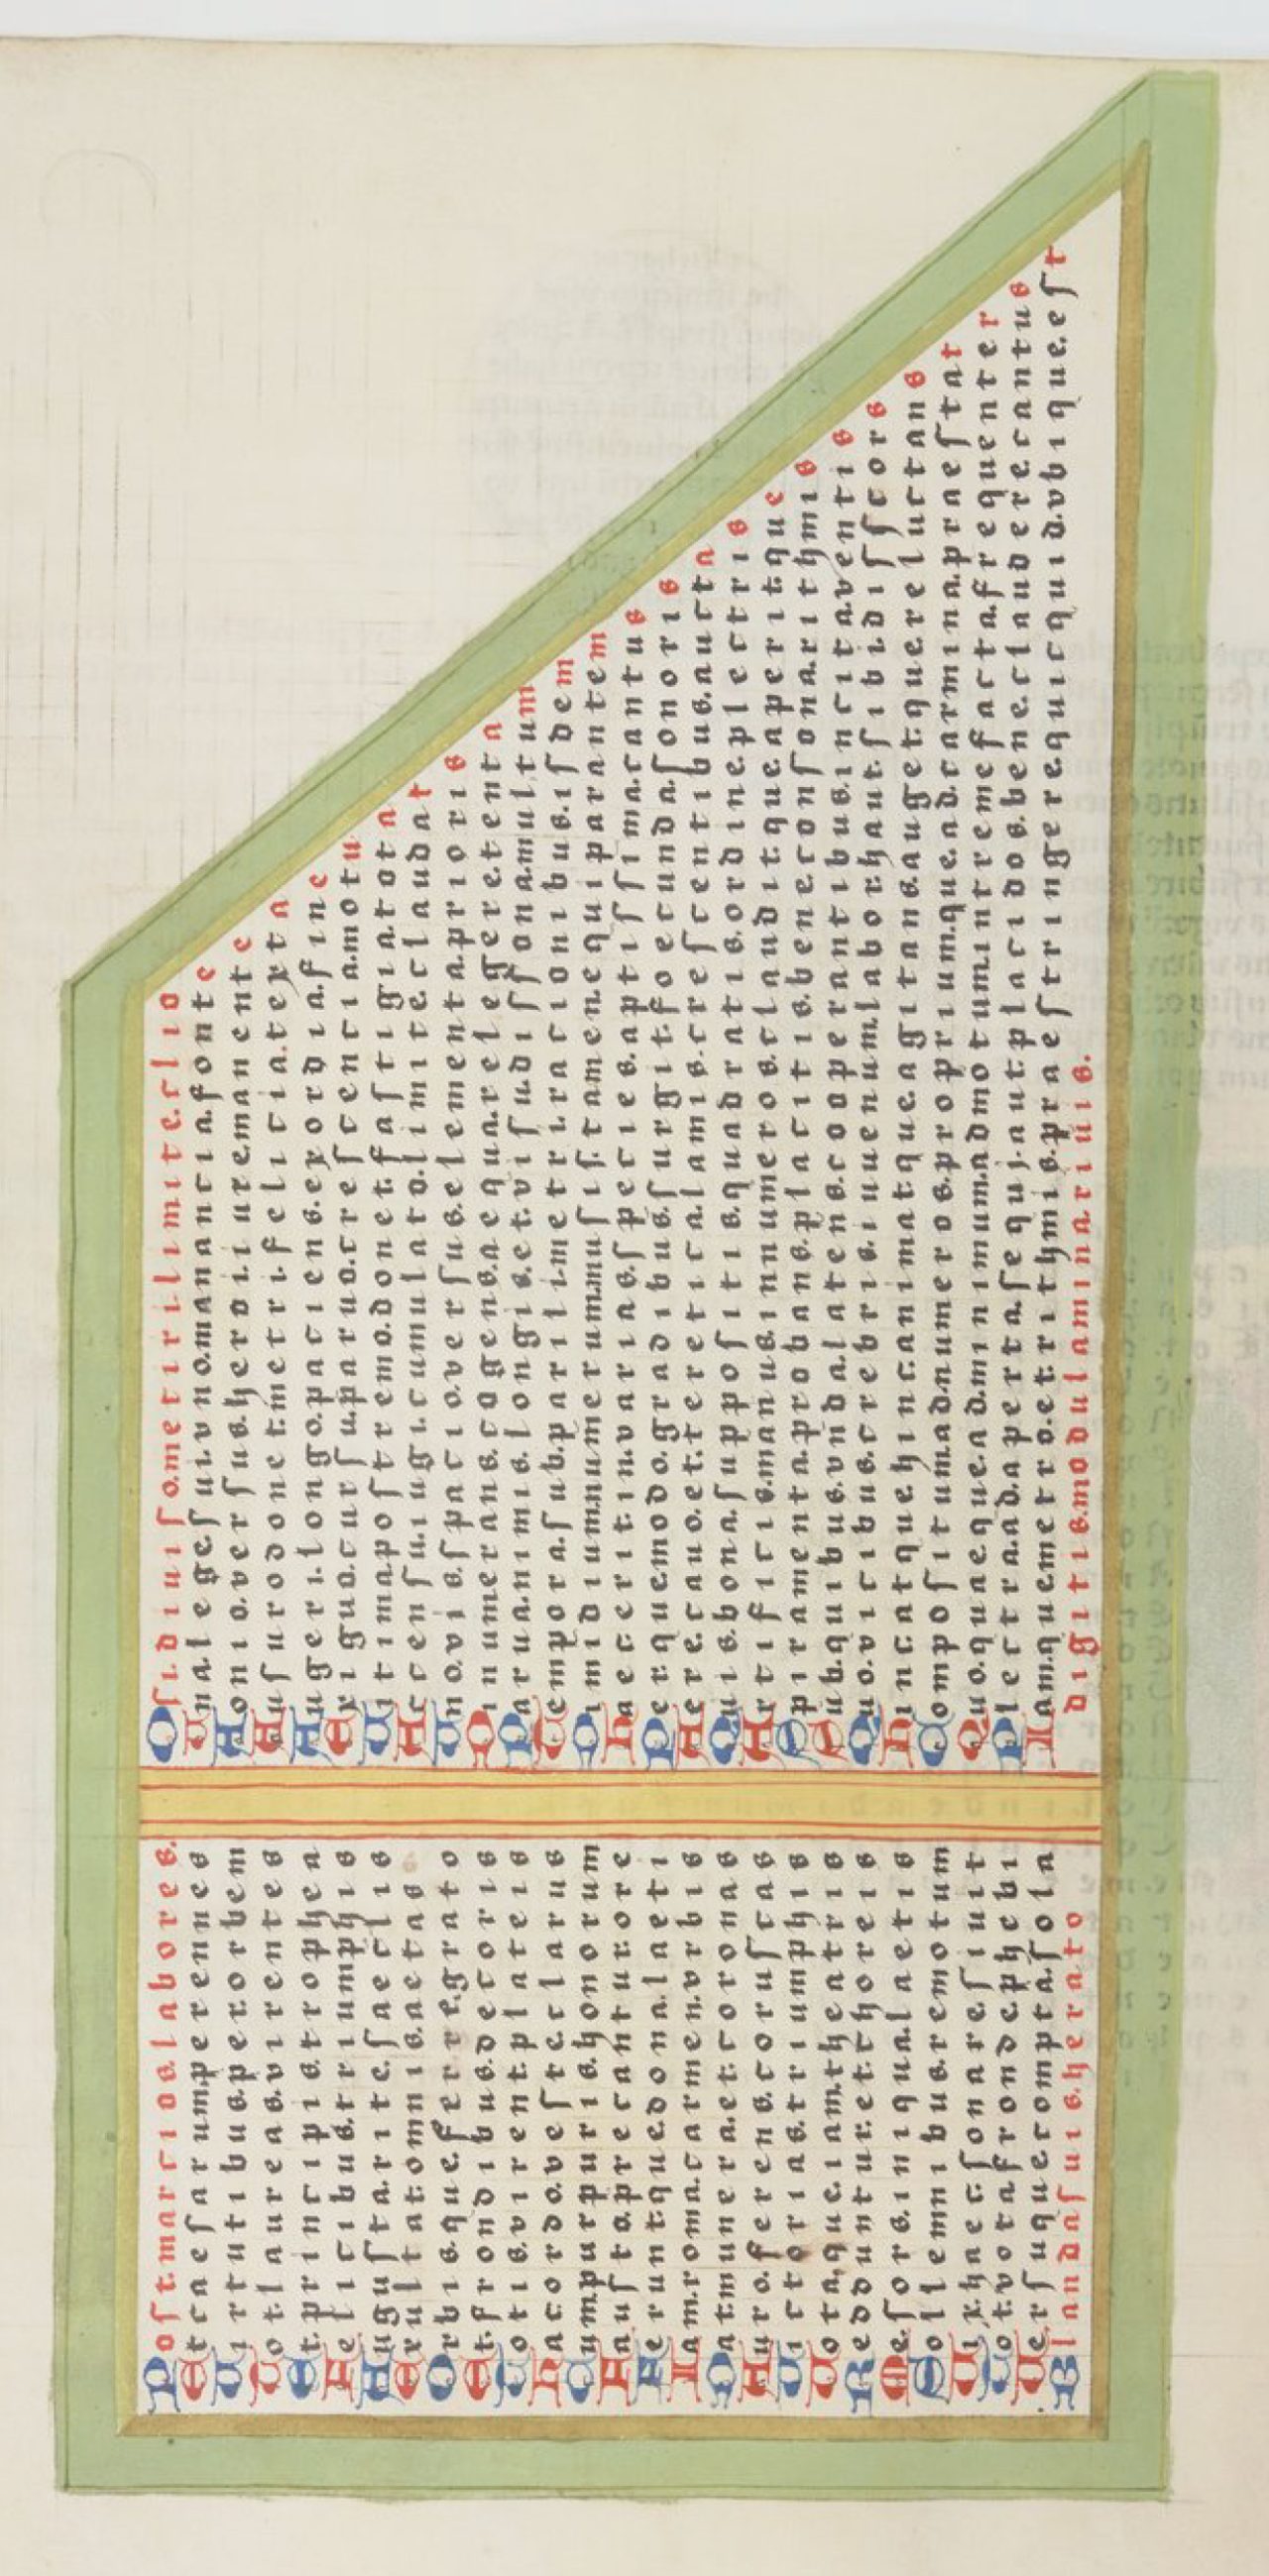 Post martios labores.
Et caesarum perennes
Virtutibus per orbem
Tot laureas virentes
Et principis trophea
Felicibus triumphis
Augusta rite saeclis
Exultat omnis aetas
Orbisque ferre grato
Et frondibus decoris
Totis virent plateis
Hac ordo veste clarus
Cum purpuris honorum
Fausto precantur ore
Ferunt que dona laeti
Iam roma carmen vrbis
Dat munera et coronas
Auro ferens coruscas
Victorias triumphis
Vota que iam theatris
Redduntur et choreis
Me sors iniqua laetis
Solemnibus remotum
Vix haec sonare siuit
Tot vota fronde phebi
Versu que compta sola
Blanda suis herato
O si diuiso metiri limite clio
Vna lege sui vno manancia fonte
Aonio versus heroi iure manente
Ausuro donet metri felicia texta
Augeri longo paciens exordia fine
Exiguo cursu paruo crescencia motu
Vltima postremo donet fastigia tota
Accensui iugi cumulato limite claudat
Vno vi spacio versus elementa prioris
Dinumerans cogens aequare lege retenta
Parua nimis longis et visu dissona multum
Tempora sub parili metri racionibus isdem
Dimidium numerum musis tamen equiparantem
Haec erit in varias species aptissima cantus
Per que modo gradibus surgit foecunda sonoris
Aere cauo et tereti calamis crescentibus aucta
Quis bona suppositis quadratis ordine plectris
Artificis manus innumeros claudit que aperit que
Spiramenta probans placitis bene consona rithmis
Sub quibus vnda latens cooperantibus incita ventis
Quo vicibus crebris iuuenum labor haut sibi discors
Incat que hinc animat que agitans auget que reluctans
Compositum ad numeros proprium que ad carmina praestat
Quo quae que ad minimum admotum intremefacta frequenter
Plectra adaperta sequi aut placidos bene claudere cantus
Iam que metro et rithmis praestringere quicquid vbique est
digitis modulamina riuis.